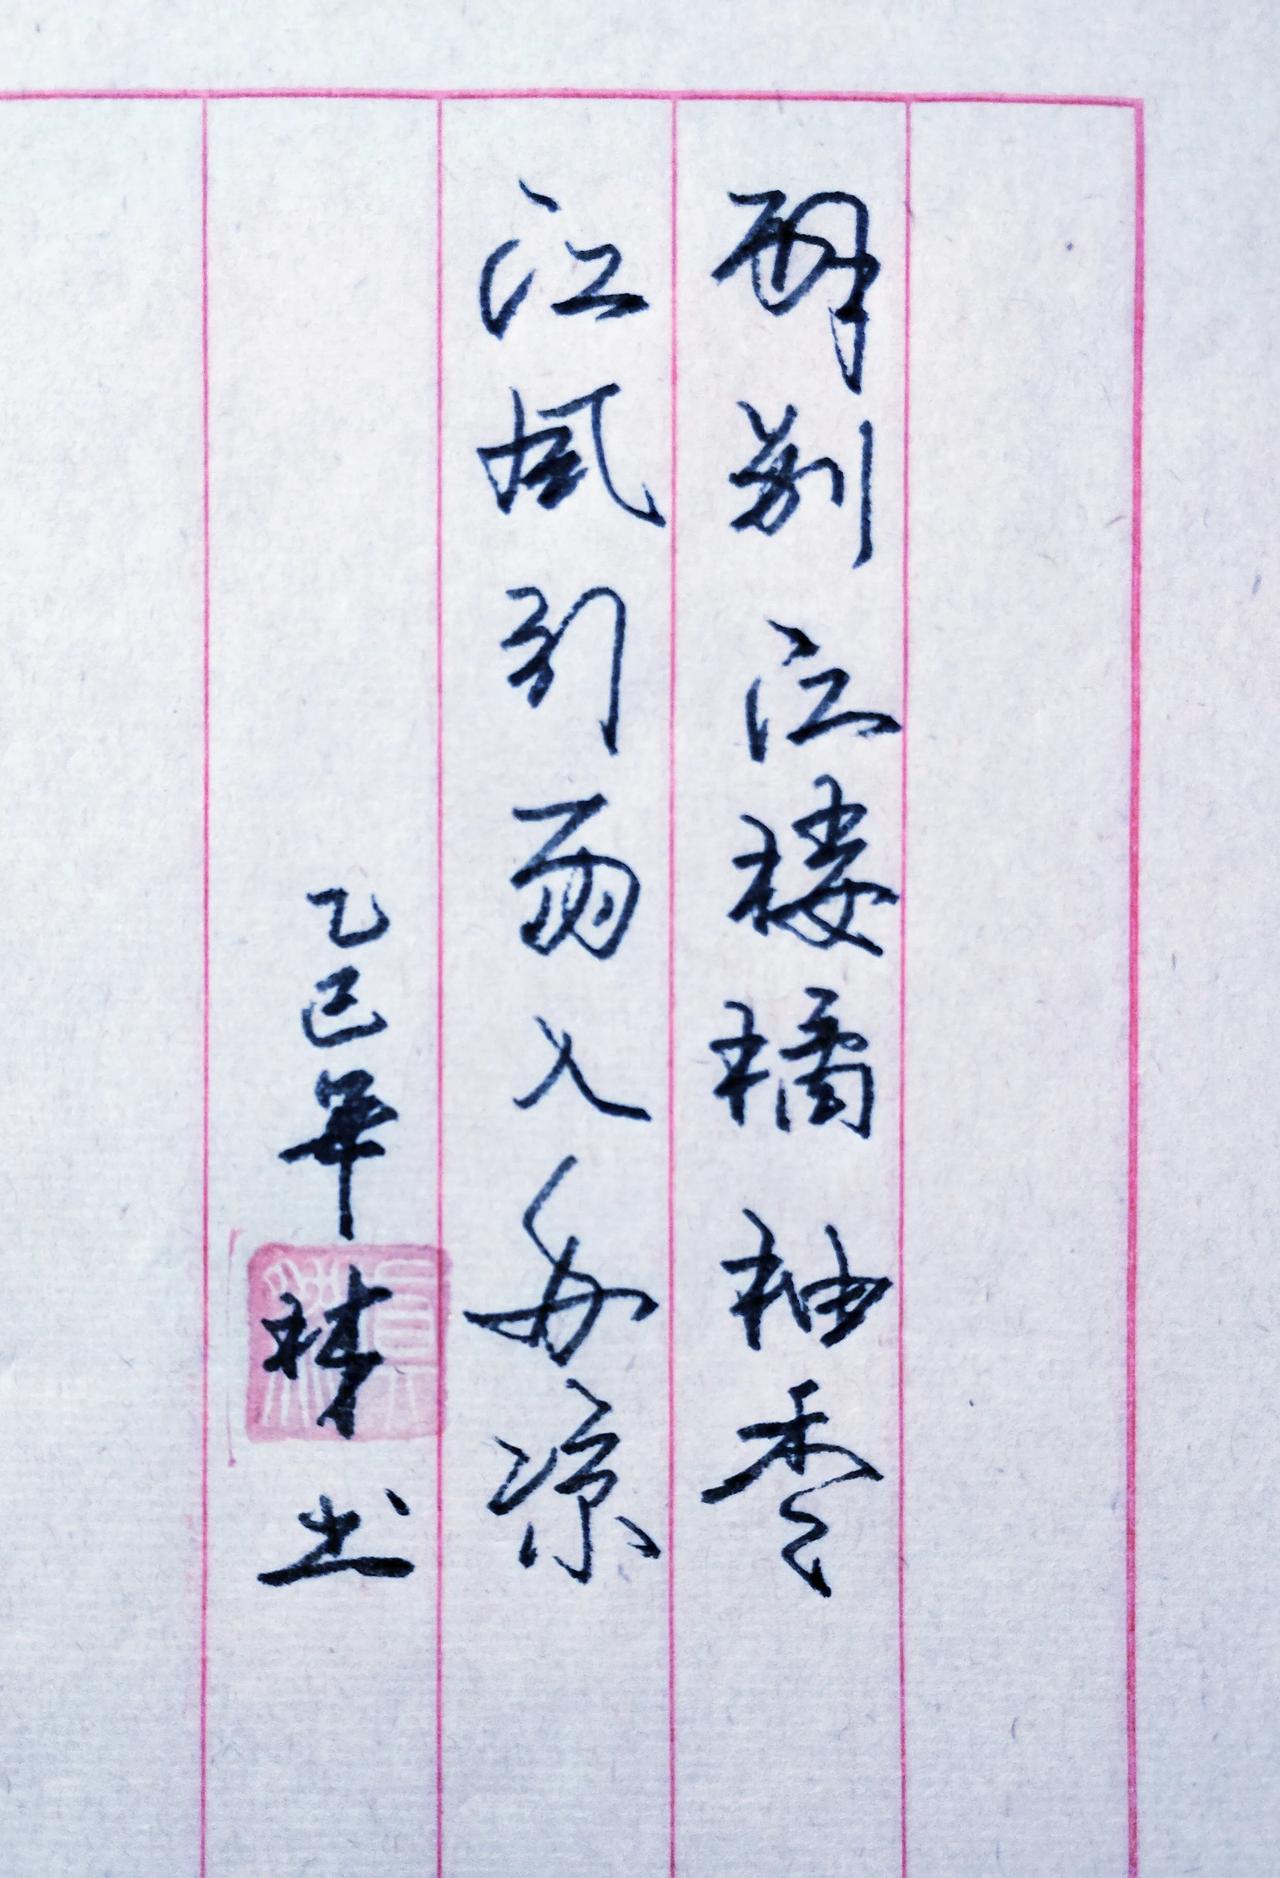 醉别江楼橘柚香
江风引雨入舟凉
乙巳年林书